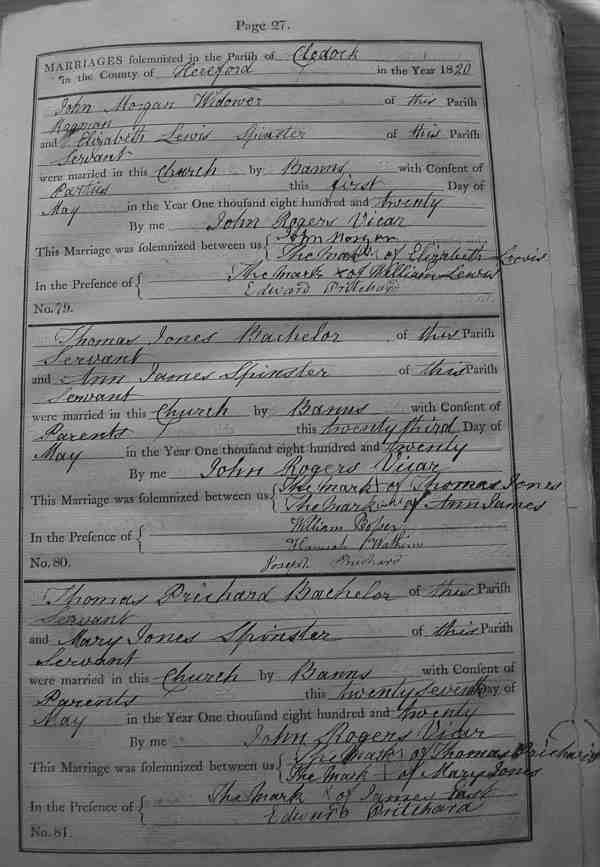 Page 27.
MARRIAGES solemnized in the Parish of Clodock
in the County of Hereford in the Year 1820
John Morgan Widower of this Parish
Ragman
and Elizabeth Lewis Spinster of this Parish
Servant
were married in this Church by Banns with Consent of
Parties this first Day of
May in the Year One thousand eight hundred and twenty
By me John Rogers Vicar
This Marriage was solemnized between us { John Morgan
The Mark of Elizabeth Lewis
In the Presence of { The Mark x of William Lewis
Edward Pritchard
No. 79.
Thomas Jones Bachelor of this Parish
Servant
and Ann James Spinster of this Parish
Servant
were married in this Church by Banns with Consent of
Parents this twenty third Day of
May in the Year One thousand eight hundred and twenty
By me John Rogers Vicar
This Marriage was solemnized between us { The Mark of Thomas Jones
The Mark of Ann James
In the Presence of { William
Hannah Watkins
No. 80. Joseph Prichard
Thomas Prichard Bachelor of this Parish
Servant
and Mary Jones Spinster of this Parish
Servant
were married in this Church by Banns with Consent of
Parents this twenty seventh Day of
May in the Year One thousand eight hundred and twenty
By me John Rogers Vicar
This Marriage was solemnized between us { The Mark of Thomas Prichard
The Mark of Mary Jones
In the Presence of { The Mark x of James
Edward Pritchard
No. 81.